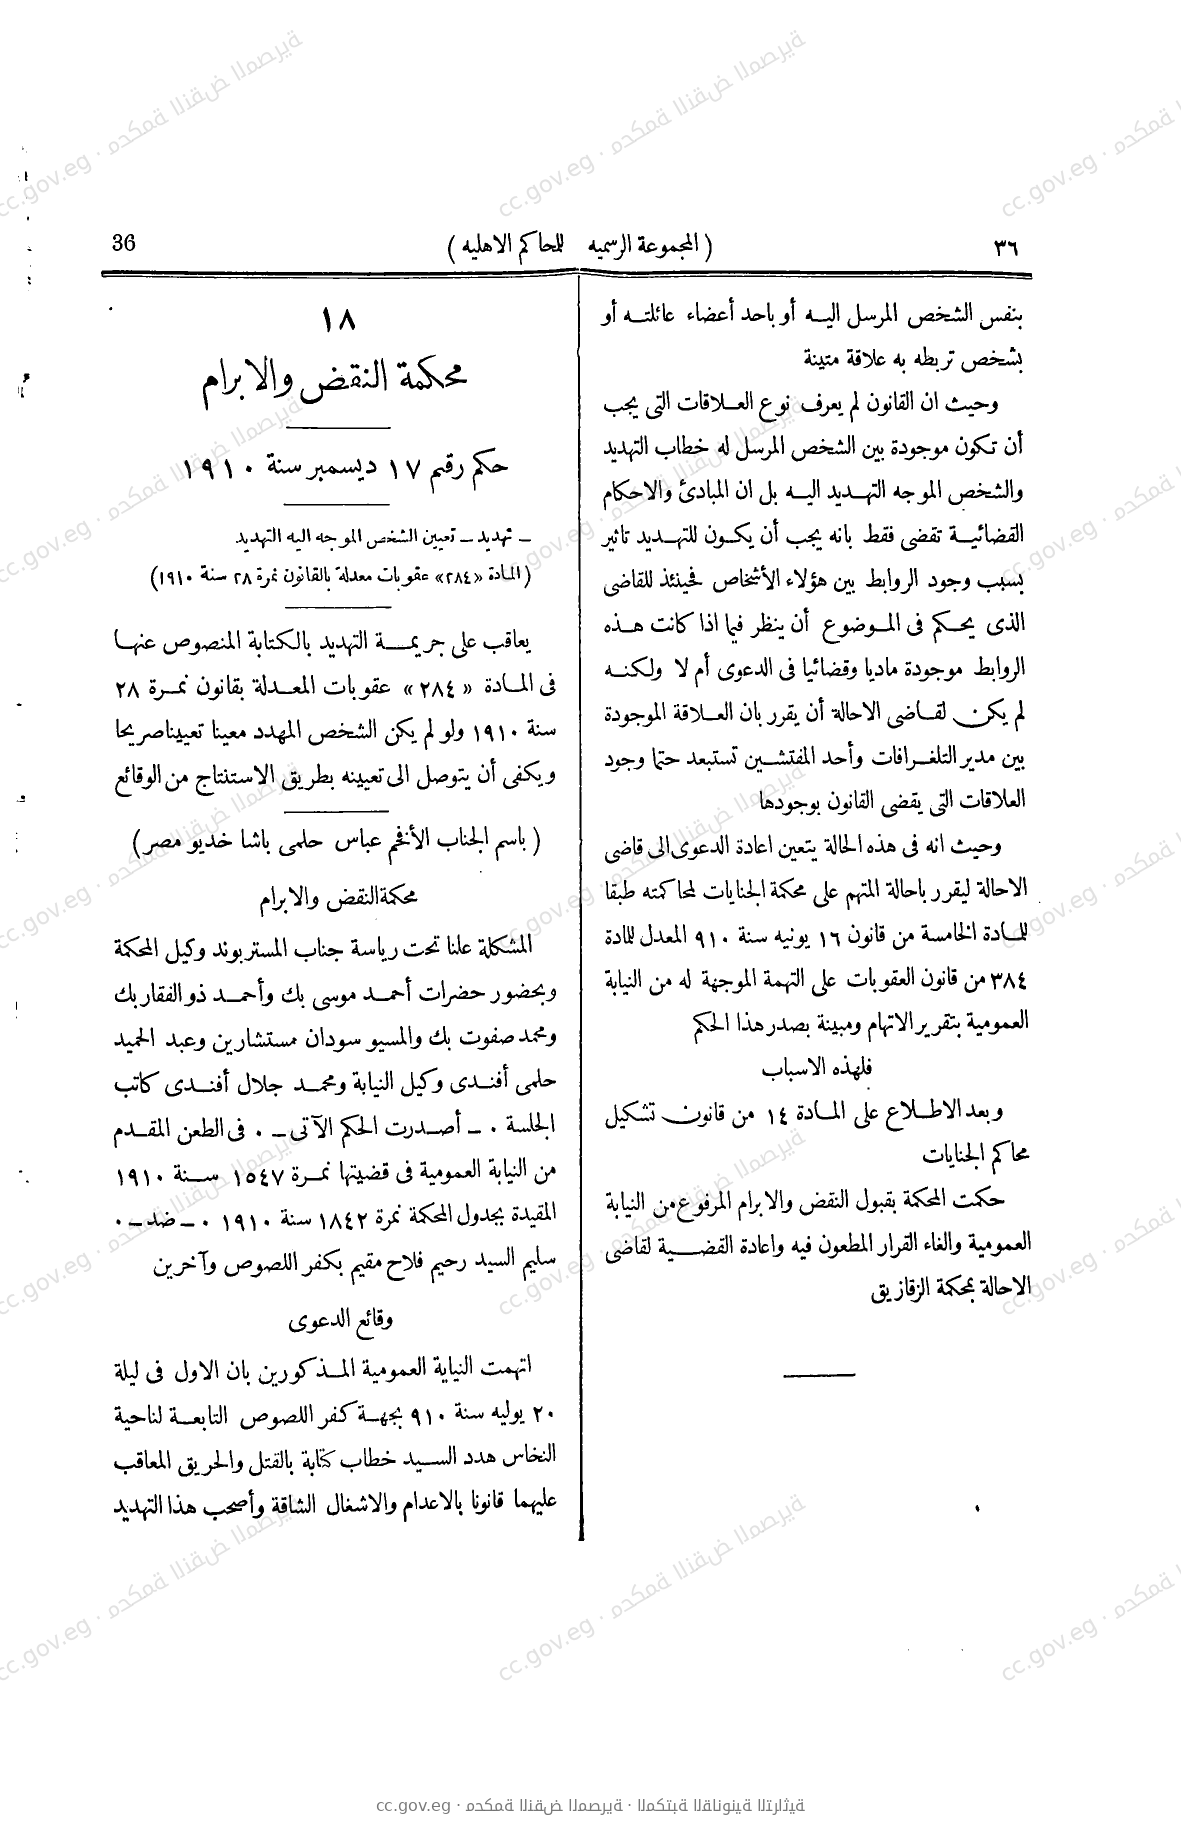 ٣٦
( المجموعة الرسميه للمحاكم الاهليه )
36
بنفس الشخص المرسل اليــه أو باحد أعضاء عائلتــه أو
بشخص تربطه به علاقة متينة
وحيث ان القانون لم يعرف نوع العــلاقات التى يجب
أن تكون موجودة بين الشخص المرسل له خطاب التهديد
والشخص الموجه التهــديد اليــه بل ان المبادئ والاحكام
القضائيــة تقضى فقط بانه يجب أن يكــون للتهــديد تاثير
بسبب وجود الروابط بين هؤلاء الأشخاص فحينئذ للقاضى
الذى يحــكم فى المــوضوع أن ينظر فيما اذا كانت هــذه
الروابط موجودة ماديا وقضائيا فى الدعوى أم لا ولكنــه
لم يكن لقــاضى الاحالة أن يقرر بان العــلاقة الموجودة
بين مدير التلغــرافات وأحد المفتشــين تستبعد حتما وجود
العلاقات التى يقضى القانون بوجودها
وحيث انه فى هذه الحالة يتعين اعادة الدعوى الى قاضى
الاحالة ليقرر باحالة المتهم على محكمة الجنايات لمحاكمته طبقا
للمــادة الخامسة من قانون ١٦ يونيه سنة ٩١٠ المعدل للمادة
٣٨٤ من قانون العقوبات على التهمة الموجهة له من النيابة
العمومية بتقرير الاتهام ومبينة بصدر هذا الحكم
فلهذه الاسباب
وبعد الاطــلاع على المــادة ١٤ من قانون تشكيل
محاكم الجنايات
حكمت المحكمة بقبول النقض والابرام المرفوع من النيابة
العمومية والغاء القرار المطعون فيه واعادة القضــية لقاضى
الاحالة بمحكمة الزقازيق
١٨
محكمة النقض والابرام
حكم رقم ١٧ ديسمبر سنة ١٩١٠
ــ تهديد ــ تعيين الشخص الموجه اليه التهديد
( المادة «٢٨٤» عقوبات معدلة بالقانون نمرة ٢٨ سنة ١٩١٠)
يعاقب على جريمــة التهديد بالكتابة المنصوص عنهــا
فى المــادة « ٢٨٤ » عقوبات المعــدلة بقانون نمــرة ٢٨
سنة ١٩١٠ ولو لم يكن الشخص المهدد معينا تعييناصريحا
ويكفى أن يتوصل الى تعيينه بطريق الاستنتاج من الوقائع
( باسم الجناب الأفخم عباس حلمى باشا خديو مصر )
محكمةالنقض والابرام
المشكلة علنا تحت رياسة جناب المستر بوند وكيل المحكمة
وبحضور حضرات أحمــد موسى بك وأحمــد ذو الفقار بك
ومحمد صفوت بك والمسيو سودان مستشارين وعبد الحميد
حلمى أفنــدى وكيل النيابة ومحمــد جلال أفنــدى كاتب
الجلسة ٠ ــ أصــدرت الحكم الآتى ــ ٠ فى الطعن المقــدم
من النيابة العمومية فى قضيتها نمــرة ١٥٤٧ ســنة ١٩١٠
المقيدة بجدول المحكمة نمرة ١٨٤٢ سنة ١٩١٠ ٠ ــ ضد ــ ٠
سليم السيد رحيم فلاح مقيم بكفر اللصوص وآخرين
وقائع الدعوى
اتهمت النيابة العمومية المــذكورين بان الاول فى ليلة
٢٠ يوليه سنة ٩١٠ بجهــة كفر اللصوص التابعــة لناحية
النخاس هدد الســيد خطاب كتابة بالقتل والحريق المعاقب
عليهما قانونا بالاعدام والاشغال الشاقة وأصحب هذا التهديد
cc.gov.eg · محكمة النقض المصرية · المكتبة القانونية التراثية